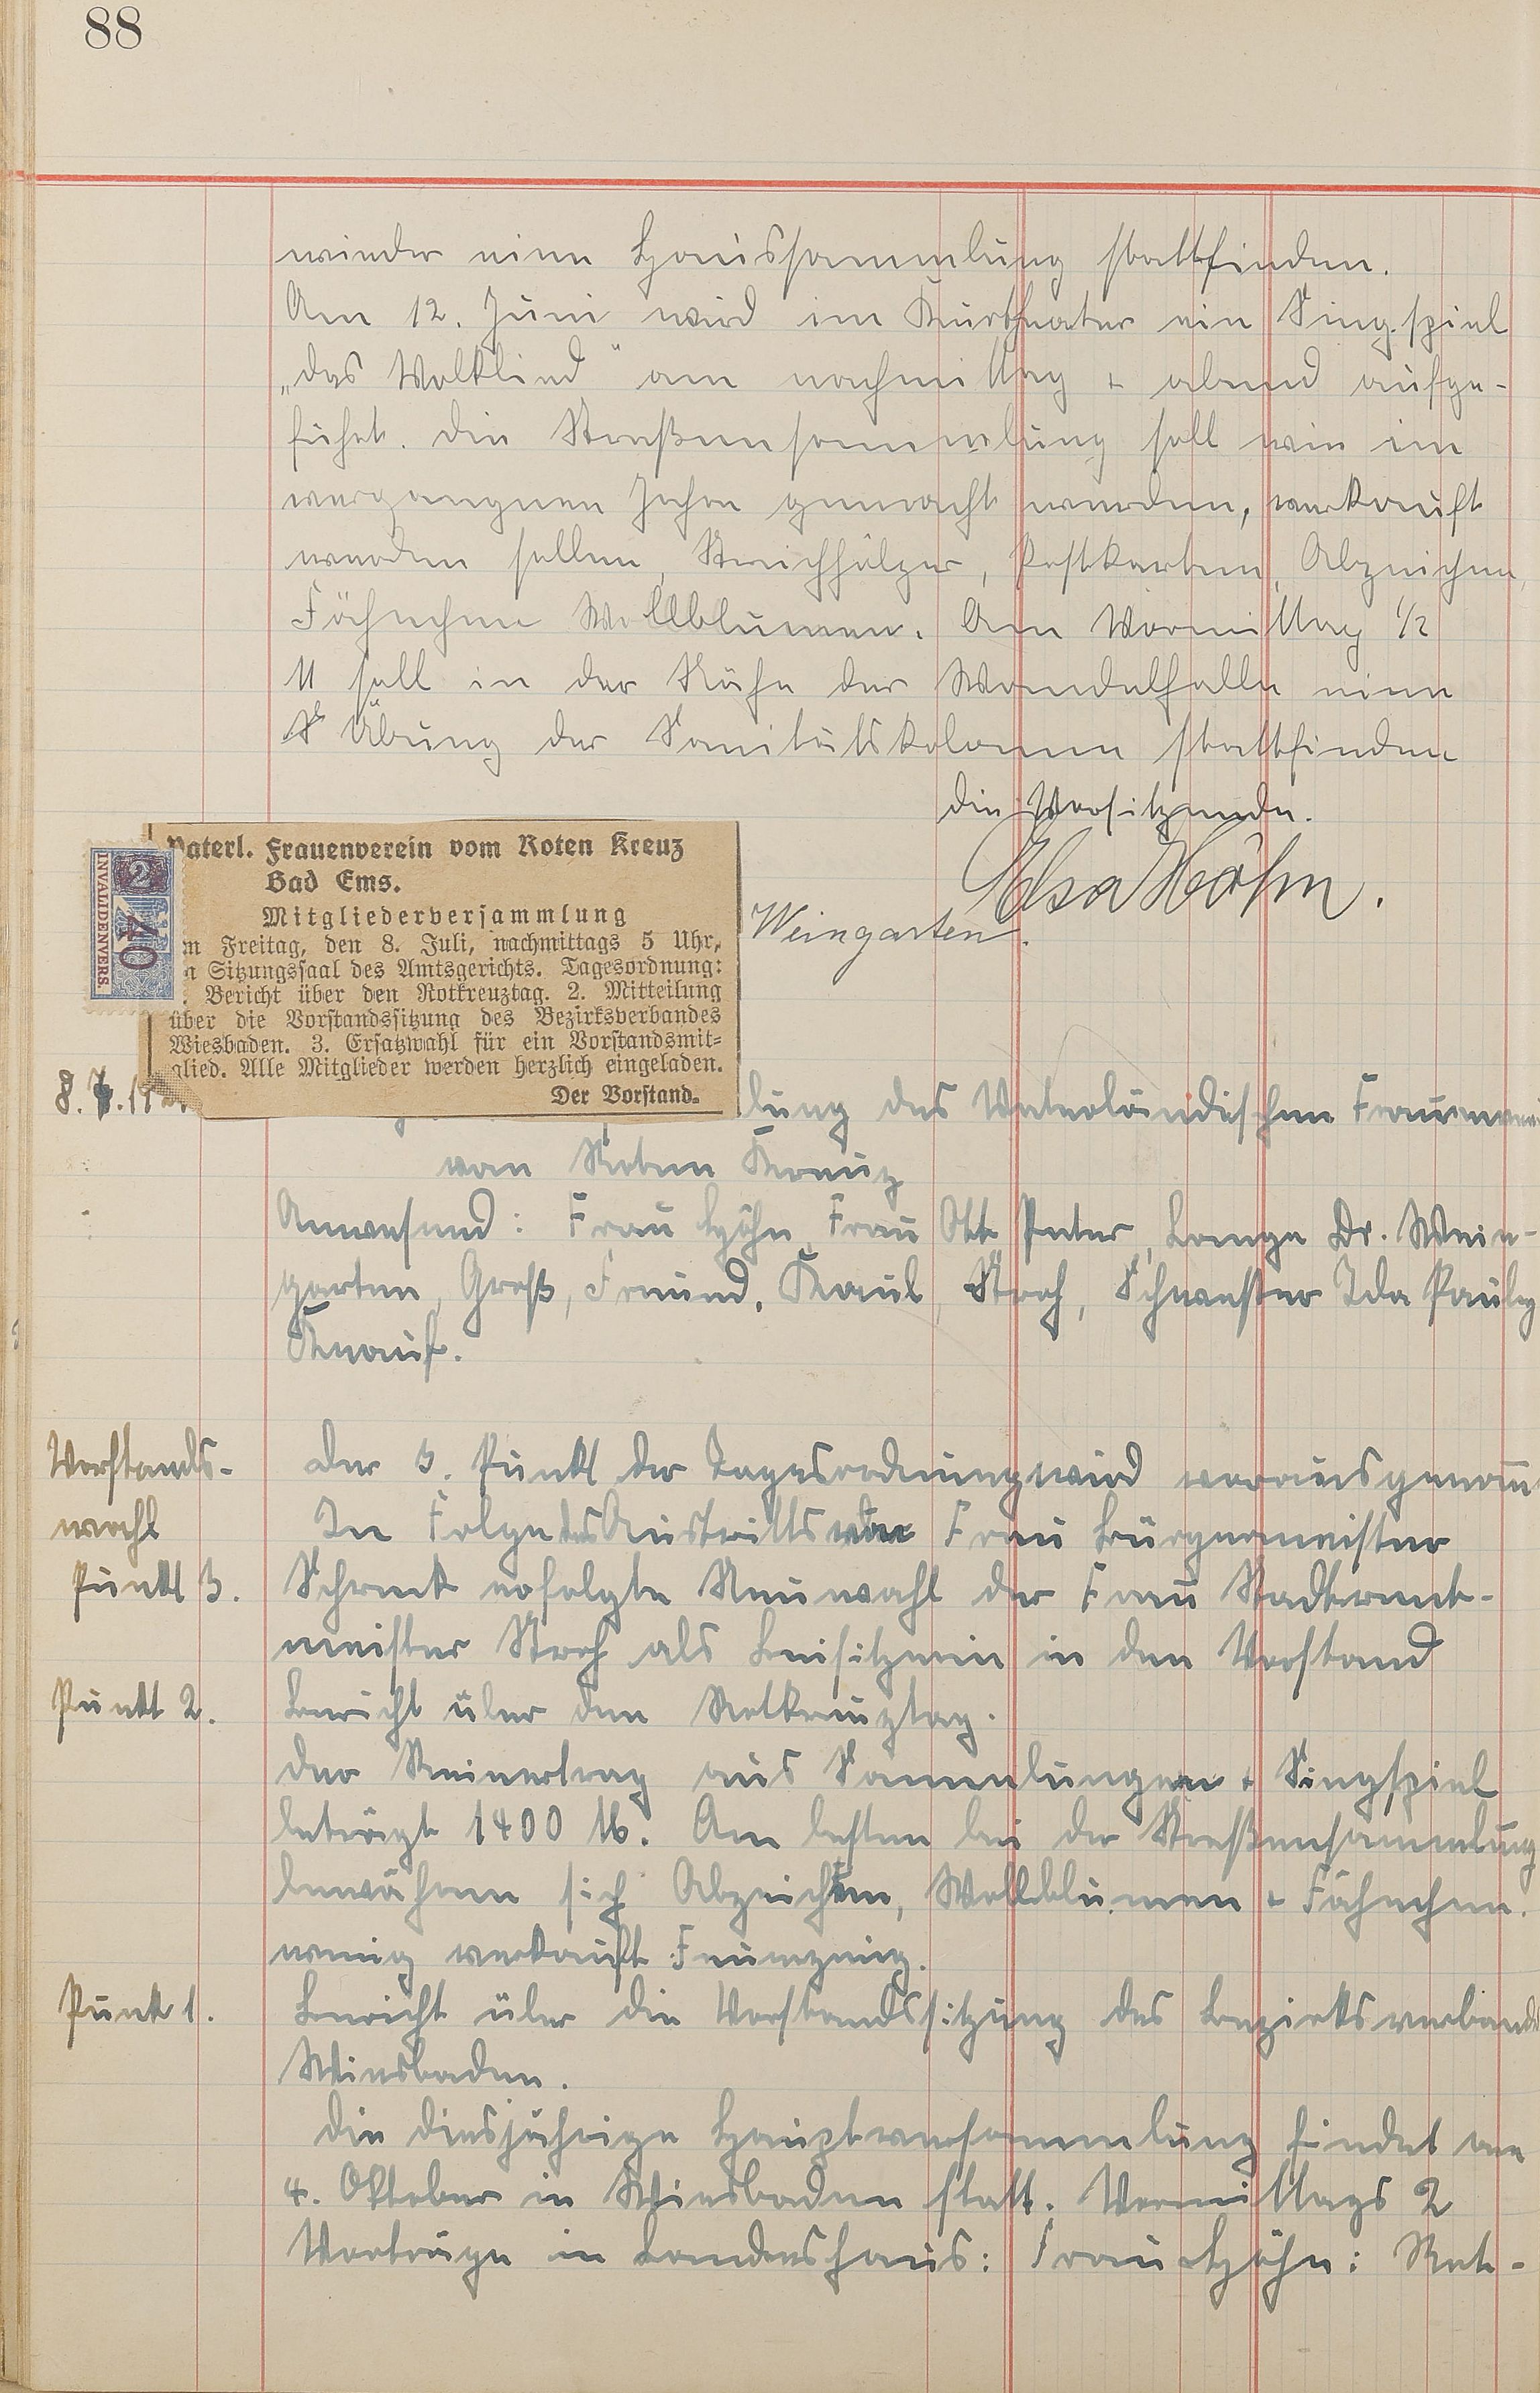 88
wieder eine Haussammlung stattfinden.
Am 12. Juni wird im Kurtheater ein Singspiel
„das Volkslied" am nachmittag + abend aufge-
führt. Die Straßensammlung soll wie im
vergangnen Jahre gemacht werden, verkauft
werden sollen, Streichhölzer, Postkarten, Abzeichen,
Fähnchen Wollblumen. Am Vormittag 1/2
11 soll in der Nähe der Wandelhalle eine
Übung der Sanitätskolonne stattfinden
Die Vorsitzende.
Elsa Höhn.
Weingarten.
Vaterl. Frauenverein vom Roten Kreuz
Bad Ems.
Mitgliederversammlung
m Freitag, den 8. Juli, nachmittags 5 Uhr,
Sitzungssaal des Amtsgerichts. Tagesordnung:
. Bericht über den Rotkreuztag. 2. Mitteilung
über die Vorstandssitzung des Bezirksverbandes
Wiesbaden. 3. Ersatzwahl für ein Vorstandsmit-
glied. Alle Mitglieder werden herzlich eingeladen.
Der Vorstand.
INVALIDENVERS.
2
40
8. 7.
lung des Vaterländischen Frauenverei
vom Roten Kreuz
Anwesend: Frau Höhn, Frau Ott Peter, Lange Dr. Wein-
garten, Groß, Freund, Kaul, Stroh, Schwester Ida Pauly
Knauf.
Vorstands-
wahl
Punkt 3.
Der 3. Punkt der Tagesordnung wird vorausgenom
In Folge des Austritts von Frau Bürgermeister
Schreck erfolgte Neuwahl der Frau Stadtrent-
meister Stroh als Beisitzerin in den Vorstand
Punkt 2.
Bericht über den Rotkreuztag.
Der Reinertrag aus Sammlungen + Singspiel
beträgt 1400 M. Am besten bei der Straßensammlung
bewähren sich Abzeichen, Wollblumen + Fähnchen.
wenig verkauft Feuerzeug.
Punkt 1.
Bericht über die Vorstandssitzung des Bezirksverband
Wiesbaden.
Die diesjährige Hauptversammlung findet am
4. Oktober in Wiesbaden statt. Vormittags 2
Vorträge im Landeshaus: Frau Höhn: Rot-